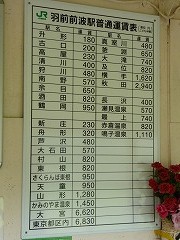 JR 羽前前波駅普通運賃表
駅名 運賃 駅名 運賃
升形 180 真室川 480
古口 200 釜淵 650
高屋 320 大滝 740
清川 400 及位 820
狩川 480 横手 1,620
南野 570 秋田 2,940
余目 650
酒田 820 長沢 400
鶴岡 950 瀬見温泉 570
最上 740
新庄 230 赤倉温泉 820
舟形 320 鳴子温泉 1,110
芦沢 480
大石田 570
村山 820
東根 820
さくらんぼ東根 950
天童 950
山形 1,280
かみのやま温泉 1,450
大宮 6,620
東京都区内 6,830